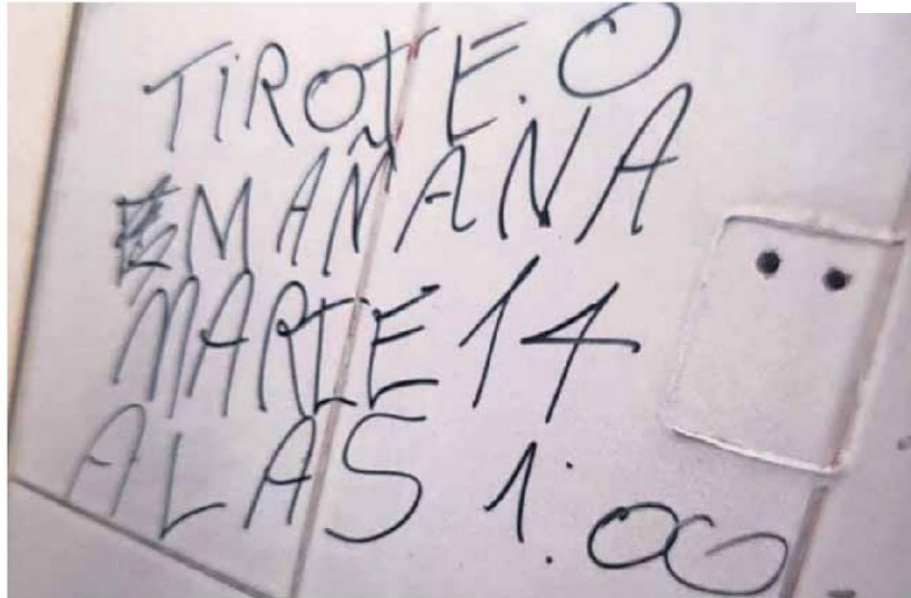 TiROTE.O
MAÑANA
MARTE 14
ALAS 1:00